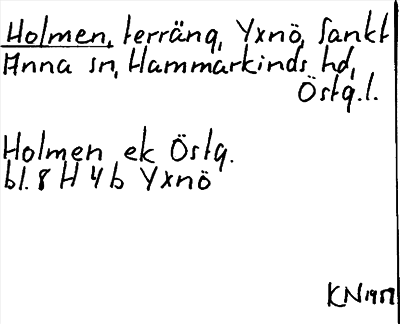 Holmen, terräng, Yxnö, Sankt
Anna sn, Hammarkinds hd,
Östg.l.
Holmen ek Östg.
bl. 8 H 4 b Yxnö
KN